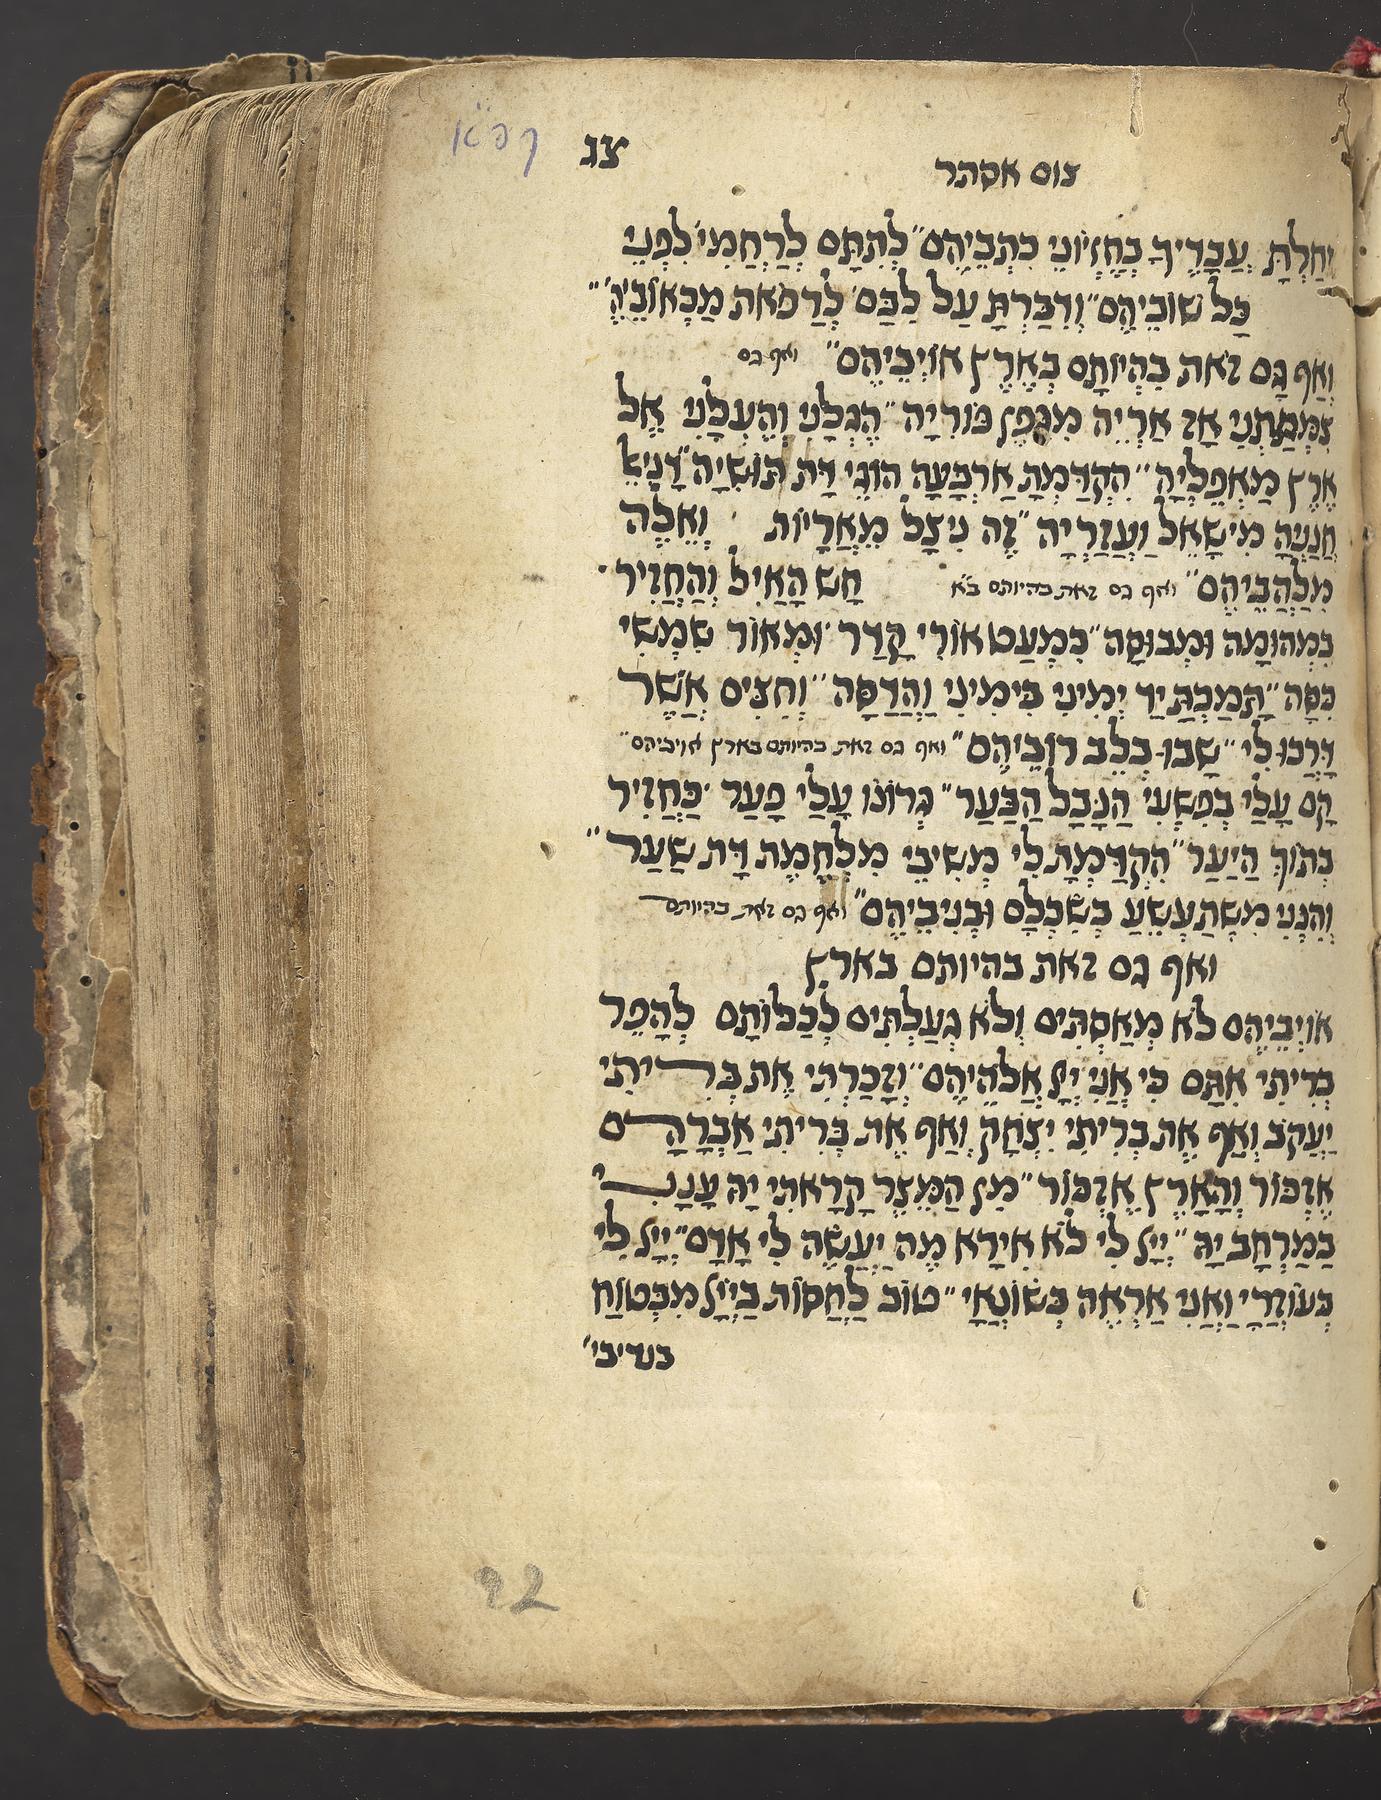 קפ״א
צג
צום אסתר
יִחַלְתָּ עֲבָדֶיךָ בְּחֶזְיוֹנֵי כִתְבֵיהֶם״ לְתִתָּם לְרַחֲמִי׳ לִפְנֵי
כָּל שׁוֹבֵיהֶם״ וְדִבַּרְתָּ עַל לִבָּם׳ לְרַפֹּאת מַכְאוֹבֵיהֶ׳״
וְאַף גַּם זֹאת בִּהְיוֹתָם בְּאֶרֶץ אוֹיְבֵיהֶם״ ואף גם
צִמְּמַתְנִי אָז אַרְיֵה מִגֶּפֶן פּוֹרִיָּה״ הֶגְלַנִי וְהֶעְלַנִי אֶל
אֶרֶץ מַאְפֵּלְיָה״ הִקְדַּמְתָּ אַרְבָּעָה הוֹגֵי דָּת תּוּשִׁיָּה״ דָּנִיֵּאל
חֲנַנְיָה מִישָׁאֵל וַעֲזַרְיָה״ זֶה נִיצָל מֵאֲרָיוֹת וְאֵלֶּה
מִלַּהֲבֵיהֶם״ ואף גם זאת בהיותם ב״א חָשׁ הָאַיִל וְהַחֲזִיר
בִּמְהוּמָה וּמְבוּסָה״ כִּמְעַט אוֹרִי קָדַר׳ וּמְאוֹר שִׁמְשִׁי
כִּסָּה״ תָּמַכְתָּ יַד יְמִינִי בִּימִינִי וַהֲדַסָּה״ וְחִצִּים אֲשֶׁר
דָּרְכוּ לִי״ שָׁבוּ בְּלֵב רוֹבֵיהֶם״ ואף גם זאת בהיותם בארץ אויביהם״
קָם עָלַי בְּפִשְׁעִי הַנָּבָל הַבַּעַר״ גְּרוֹנוֹ עָלַי פָּעַר׳ כַּחֲזִיר
בְּתוֹךְ הַיַּעַר״ הִקְדַּמְתָּ לִי מְשִׁיבֵי מִלְחֶמֶת דָּת שַׁעַר״
וְהִנְנִי מִשְׁתַּעֲשֵׁעַ בְּשִׂכְלָם וּבְנִיבֵיהֶם״ ואף גם זאת בהיותם
ואף גם זאת בהיותם בארץ
אוֹיְבֵיהֶם לֹא מְאַסְתִּים וְלֹא גְעַלְתִּים לְכַלּוֹתָם לְהָפֵר
בְּרִיתִי אִתָּם כִּי אֲנִי יְיָ אֱלֹהֵיהֶם״ וְזָכַרְתִּי אֶת בְּרִיתִי
יַעֲקֹב וְאַף אֶת בְּרִיתִי יִצְחָק וְאַף אֶת בְּרִיתִי אַבְרָהָם
אֶזְכּוֹר וְהָאָרֶץ אֶזְכּוֹר״ מִן הַמֵּצַר קָרָאתִי יָהּ עָנָנִי
בַמֶּרְחָב יָהּ״ יְיָ לִי לֹא אִירָא מַה יַּעֲשֶׂה לִי אָדָם״ יְיָ לִי
בְּעוֹזְרָי וַאֲנִי אֶרְאֶה בְּשׂוֹנְאָי״ טוֹב לַחֲסוֹת בַּיְיָ מִבְּטוֹחַ
בנדיבי׳
92